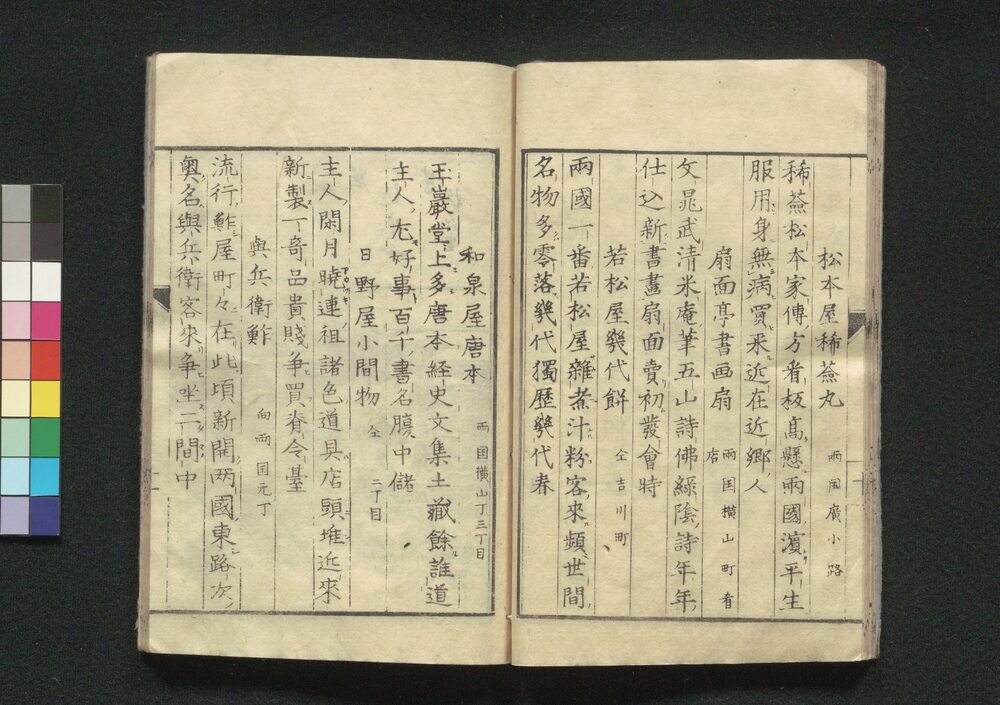 松本屋稀薟丸 両国廣小路
稀薟松本家傳方看板高懸兩國濵平生
服用身無病買来近在近郷人
扇面亭書画扇 両国横山町看店
文晁武清米庵筆五山詩佛緑陰詩年年
仕込新書畫扇面賣初發會時
若松屋幾代餅 仝吉川町
兩國一番若松屋雜煮汁粉客來頻世間
名物多零落幾代獨歴幾代春
和泉屋唐本 両国横山丁三丁目
玉巖堂上多唐本経史文集土藏餘誰道
主人尤好事百千書名腹中儲
日野屋小間物 仝二丁目
主人閑月曉連祖諸色道具店頭堆近來
新製丁奇品貴賎争買脊令臺
與兵衛鮓 向両国元丁
流行鮓屋町々在此頃新開两國東路次
奥名與兵衛客來争坐二間中